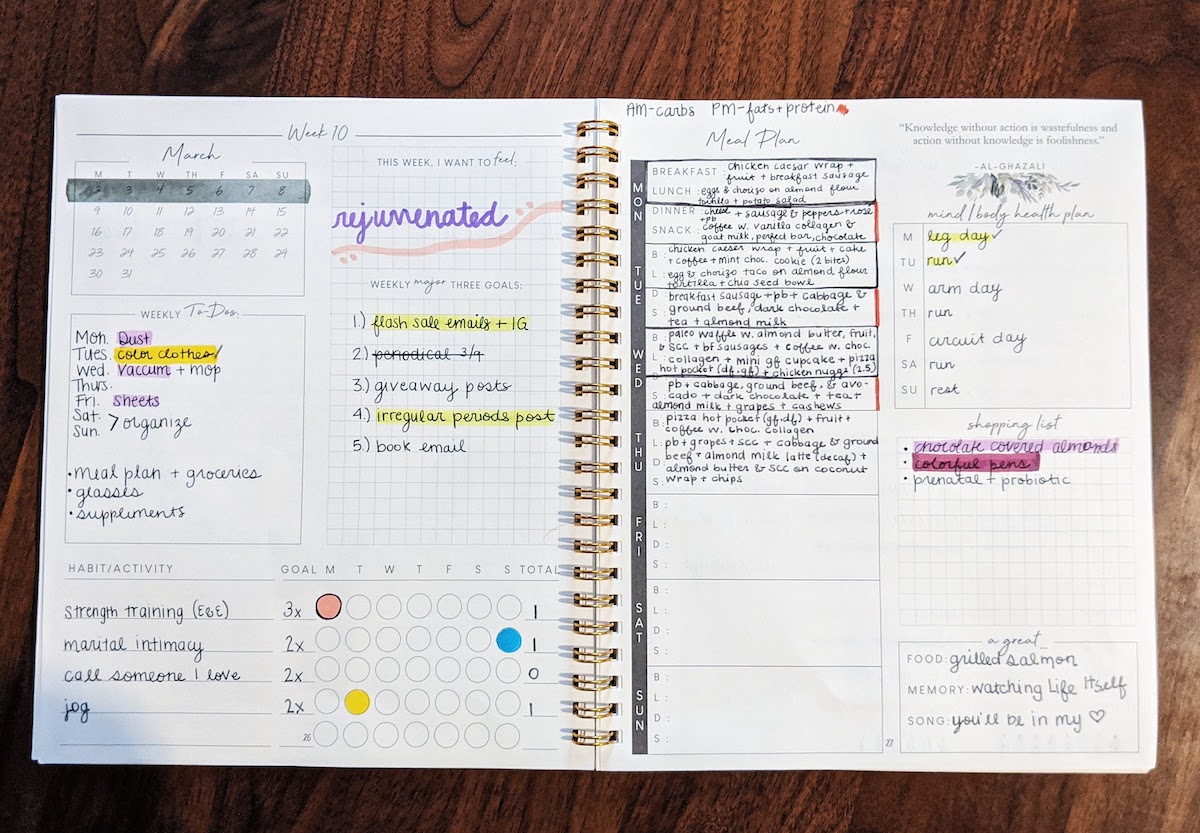 Week 10
March
M T W TH F SA SU
2 3 4 5 6 7 8
9 10 11 12 13 14 15
16 17 18 19 20 21 22
23 24 25 26 27 28 29
30 31
WEEKLY To-Dos:
Mon. Dust
Tues. color clothes/
Wed. Vaccum + mop
Thurs.
Fri. Sheets
Sat.
Sun. > organize
• Meal plan + groceries
• glasses
• suppliments
THIS WEEK, I WANT TO feel:
rejuvenated
WEEKLY major THREE GOALS:
1.) flash sale emails + IG
2.) periodical 3/9
3.) giveaway posts
4.) irregular periods post
5.) book email
HABIT/ACTIVITY GOAL M T W T F S S TOTAL
strength training (E&E) 3x 1
marital intimacy 2x 1
call someone I love 2x 0
jog 2x 1
26
AM-carbs PM-fats+protein
Meal Plan
MON
BREAKFAST: chicken caesar wrap +
fruit + breakfast sausage
LUNCH: eggs & chorizo on almond flour
tortilla + potato salad
DINNER: cheese + sausage & peppers + rosé
+pb
SNACK: coffee w. vanilla collagen &
goat milk, perfect bar, chocolate
TUE
B: chicken caeser wrap + fruit + cake
+ coffee + mint choc. cookie (2 bites)
L: egg & chorizo taco on almond flour
tortilla + chia seed bowl
D breakfast sausage + pb + cabbage &
S: ground beef, dark chocolate +
tea + almond milk
WED
B: paleo waffle w. almond butter, fruit,
& SCC + bf sausages + coffee w. choc.
L: collagen + mini gf cupcake + pizza
hot pocket (df, gf) + chicken nuggs (2.5)
pb + cabbage, ground beef, & avo-
S: cado + dark chocolate + tea +
almond milk + grapes + cashews
THU
B: pizza hot pocket (gf, df) + fruit +
coffee w. choc. collagen
L: pb + grapes + SCC + cabbage & ground
D beef + almond milk latte (decaf) +
almond butter & SCC on coconut
S: wrap + chips
FRI
B:
L:
D:
S:
SAT
B:
L:
D:
S:
SUN
B:
L:
D:
S:
"Knowledge without action is wastefulness and
action without knowledge is foolishness."
-AL-GHAZALI
mind/body health plan
M leg day ✓
TU run ✓
W arm day
TH run
F circuit day
SA run
SU rest
shopping list
• chocolate covered almonds
• colorful pens
• prenatal + probiotic
a great...
FOOD: grilled salmon
MEMORY: watching Life Itself
SONG: you'll be in my ♡
27